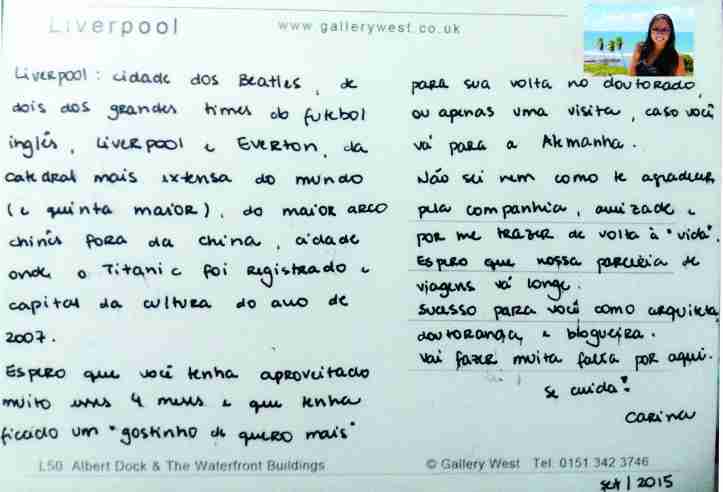 Liverpool
www.gallerywest.co.uk
Liverpool: cidade dos Beatles, de
dois dos grandes times do futebol
inglês, Liverpool e Everton, da
catedral mais extensa do mundo
(e quinta maior), do maior arco
chinês fora da China, cidade
onde o Titanic foi registrado e
capital da cultura do ano de
2007.
Espero que você tenha aproveitado
muito esses 4 meses e que tenha
ficado um "gostinho de quero mais"
para sua volta no doutorado,
ou apenas uma visita, caso você
vá para a Alemanha.
Não sei nem como te agradecer
pela companhia, amizade e
por me trazer de volta à "vida".
Espero que nossa parceria de
viagens vá longe.
Sucesso para você como arquiteta,
doutoranda e blogueira.
Vai fazer muita falta por aqui.
Se cuida!
Carina
L50 Albert Dock & The Waterfront Buildings
© Gallery West Tel: 0151 342 3746
set/2015